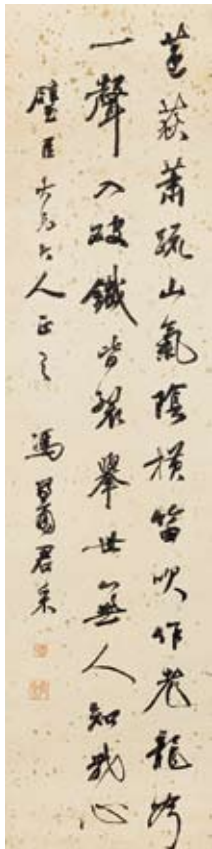 蘆荻蕭疏山氣陰橫笛吹作老龍吟
一聲入破鐵皆裂舉世無人知我心
璧臣大人正之 馮君采